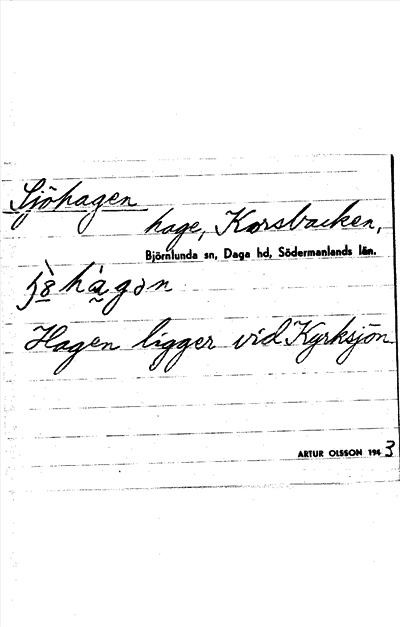 Sjöhagen
hage, Korsbacken,
Björnlunda sn, Daga hd, Södermanlands län.
Hagen ligger vid Kyrksjön
ARTUR OLSSON 1943